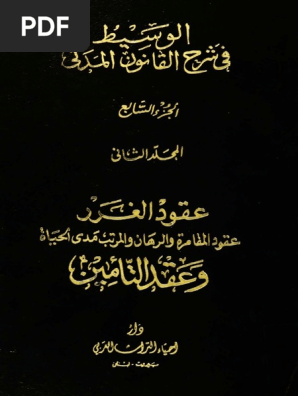 PDF
الوسيط
في شرح القانون المدني
الجزء السابع
المجلد الثاني
عقود الغرر
عقود المقامرة والرهان والمرتب مدى الحياة
وعقد التأمين
دار
احياء التراث العربي
بيروت - لبنان